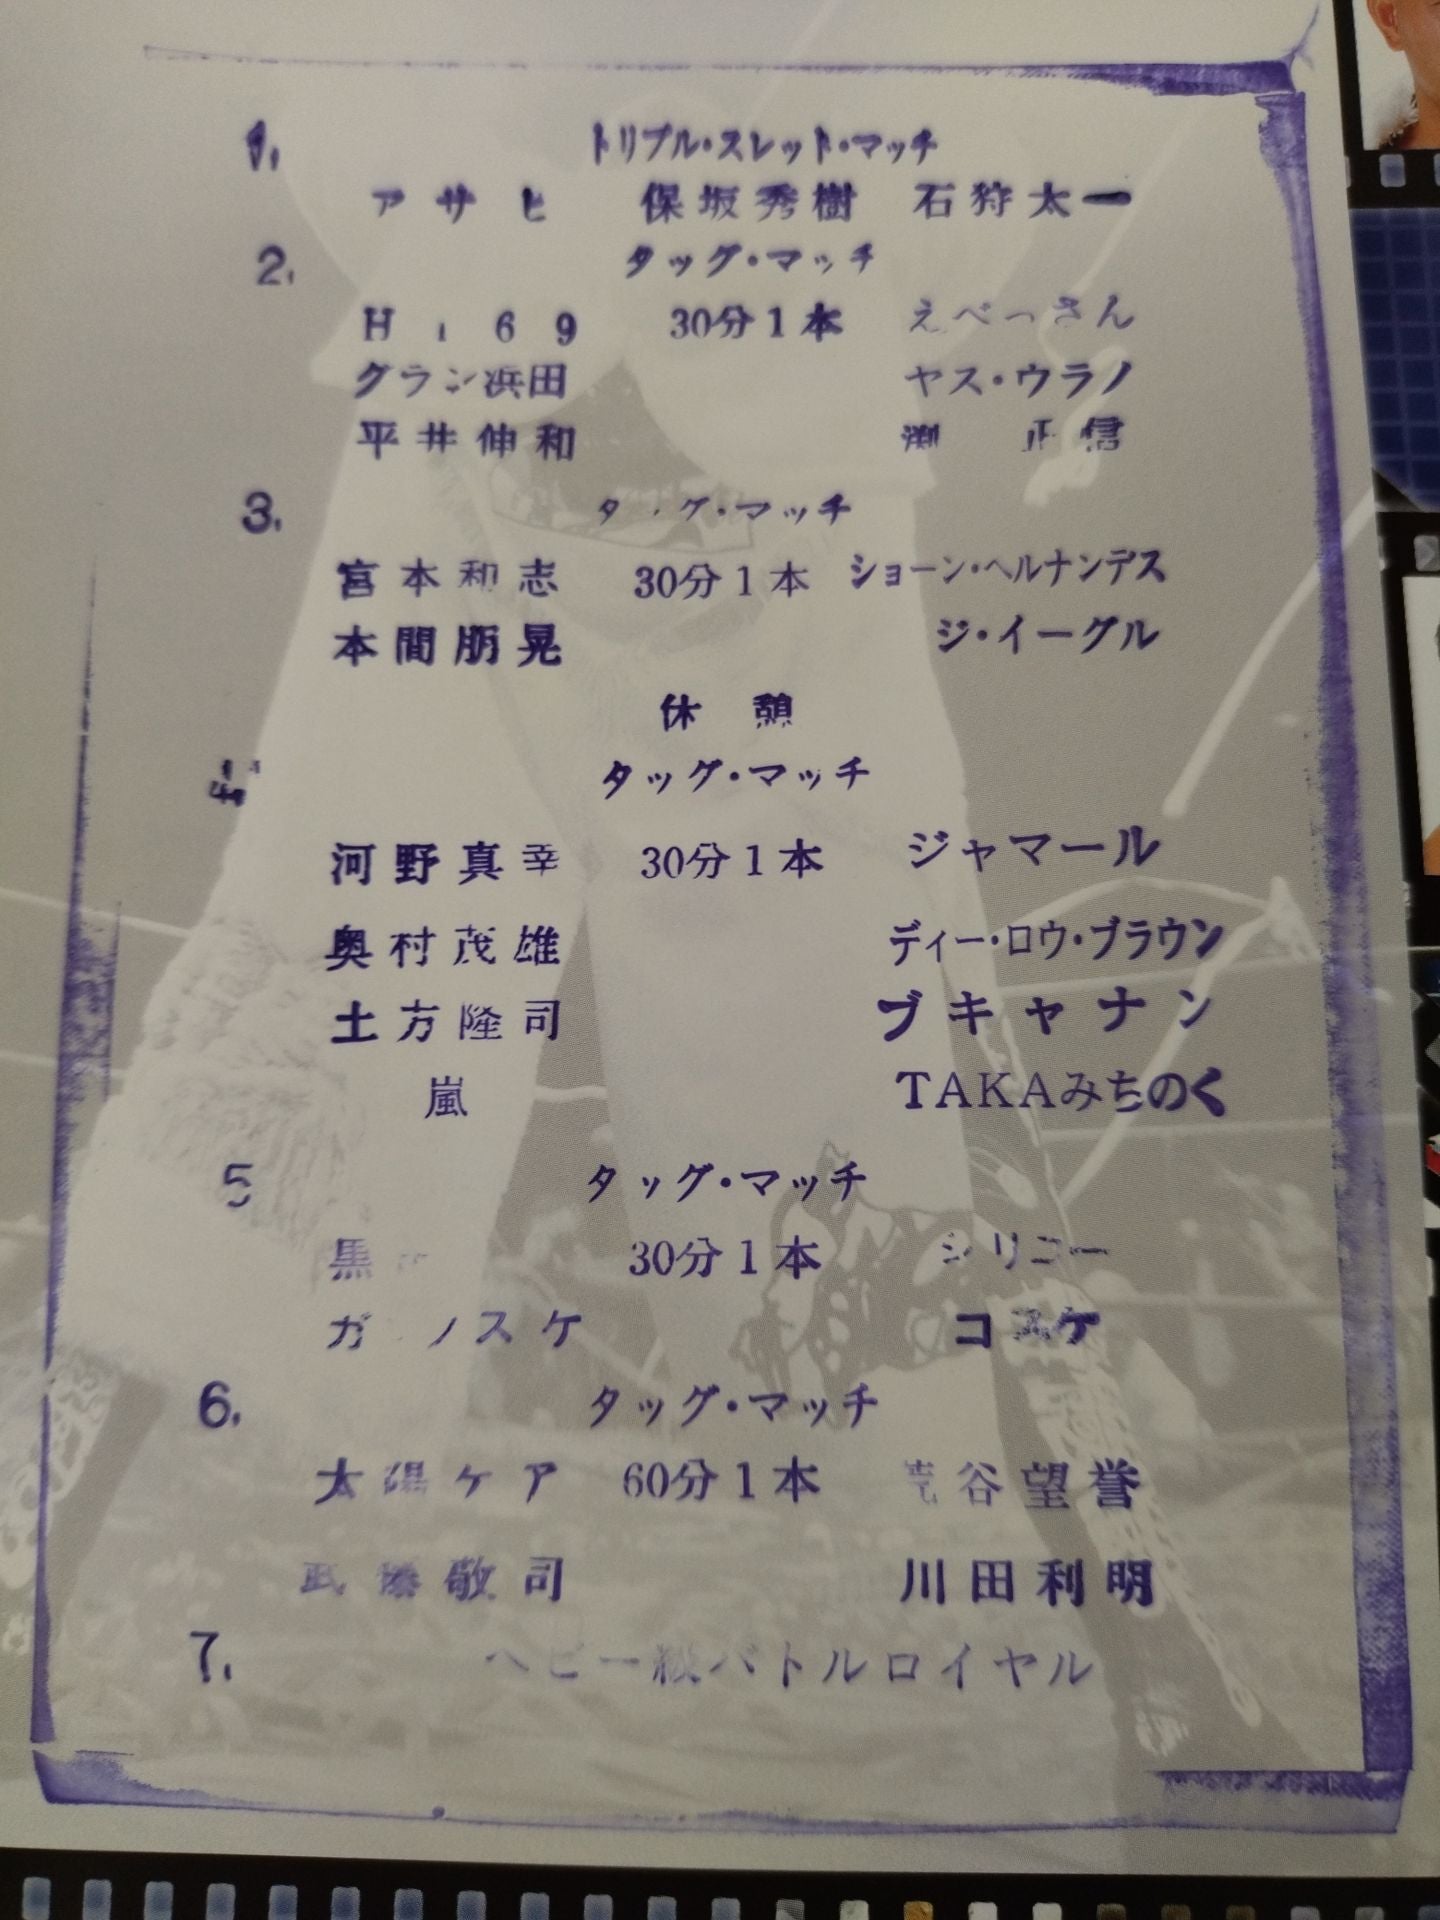 1. トリプル・スレット・マッチ
アサヒ 保坂秀樹 石狩太一
2. タッグ・マッチ
Hi69 30分1本 えべっさん
グラン浜田 ヤス・ウラノ
平井伸和 渕 正信
3. タッグ・マッチ
宮本和志 30分1本 ショーン・ヘルナンデス
本間朋晃 ジ・イーグル
休憩
4. タッグ・マッチ
河野真幸 30分1本 ジャマール
奥村茂雄 ディー・ロウ・ブラウン
土方隆司 ブキャナン
嵐 TAKAみちのく
5 タッグ・マッチ
30分1本 ジリコー
ガンノスケ コスケ
6. タッグ・マッチ
太陽ケア 60分1本 荒谷望誉
武藤敬司 川田利明
7. ヘビー級バトルロイヤル